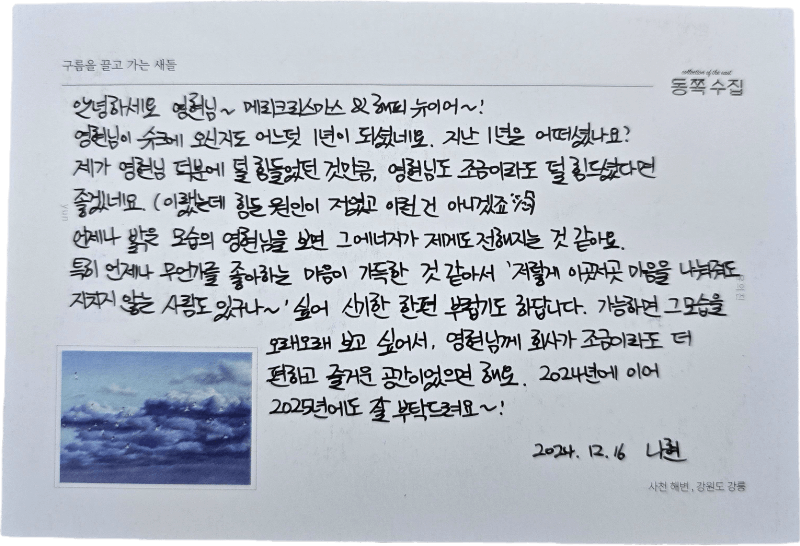 구름을 끌고 가는 새들
collection of the east
동쪽수집
안녕하세요 영현님~ 메리크리스마스 & 해피 뉴이어~!
영현님이 슈크에 오신지도 어느덧 1년이 되셨네요. 지난 1년은 어떠셨나요?
제가 영현님 덕분에 덜 힘들었던 것만큼, 영현님도 조금이라도 덜 힘드셨다면
좋겠네요. (이랬는데 힘든 원인이 저였고 이런 건 아니겠죠
언제나 밝은 모습의 영현님을 보면 그에너지가 제게도 전해지는 것 같아요.
특히 언제나 무언가를 좋아하는 마음이 가득한 것 같아서 '저렇게 이곳저곳 마음을 나눠줘도
지치지 않는 사람도 있구나~' 싶어 신기한 한편 부럽기도 하답니다. 가능하면 그모습을
오래오래 보고 싶어서, 영현님께 회사가 조금이라도 더
편하고 즐거운 공간이었으면 해요. 2024년에 이어
2025년에도 잘 부탁드려요~!
2024. 12. 16 나현
사천 해변, 강원도 강릉